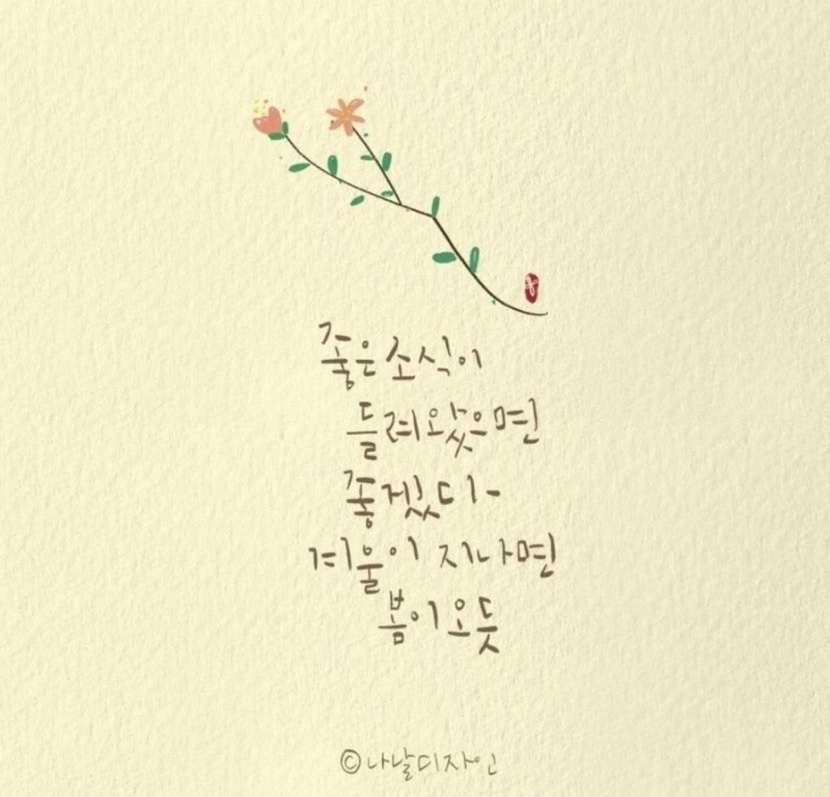 좋은 소식이
들려왔으면
좋겠다
겨울이 지나면
봄이 오듯
©나날디자인